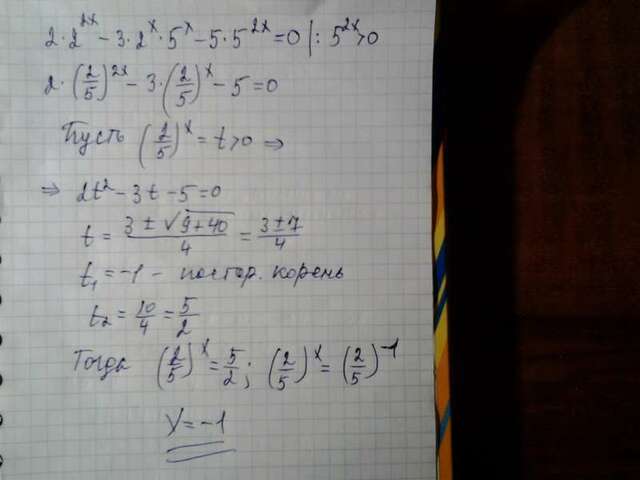 2·2^{2x} − 3·2^x·5^x − 5·5^{2x} = 0 |: 5^{2x} > 0
2·(2/5)^{2x} − 3·(2/5)^x − 5 = 0
Пусть (2/5)^x = t > 0 ⇒
⇒ 2t² − 3t − 5 = 0
t = (3 ± √(9+40))/4 = (3 ± 7)/4
t₁ = −1 − постор. корень
t₂ = 10/4 = 5/2
Тогда (2/5)^x = 5/2; (2/5)^x = (2/5)^{−1}
x = −1